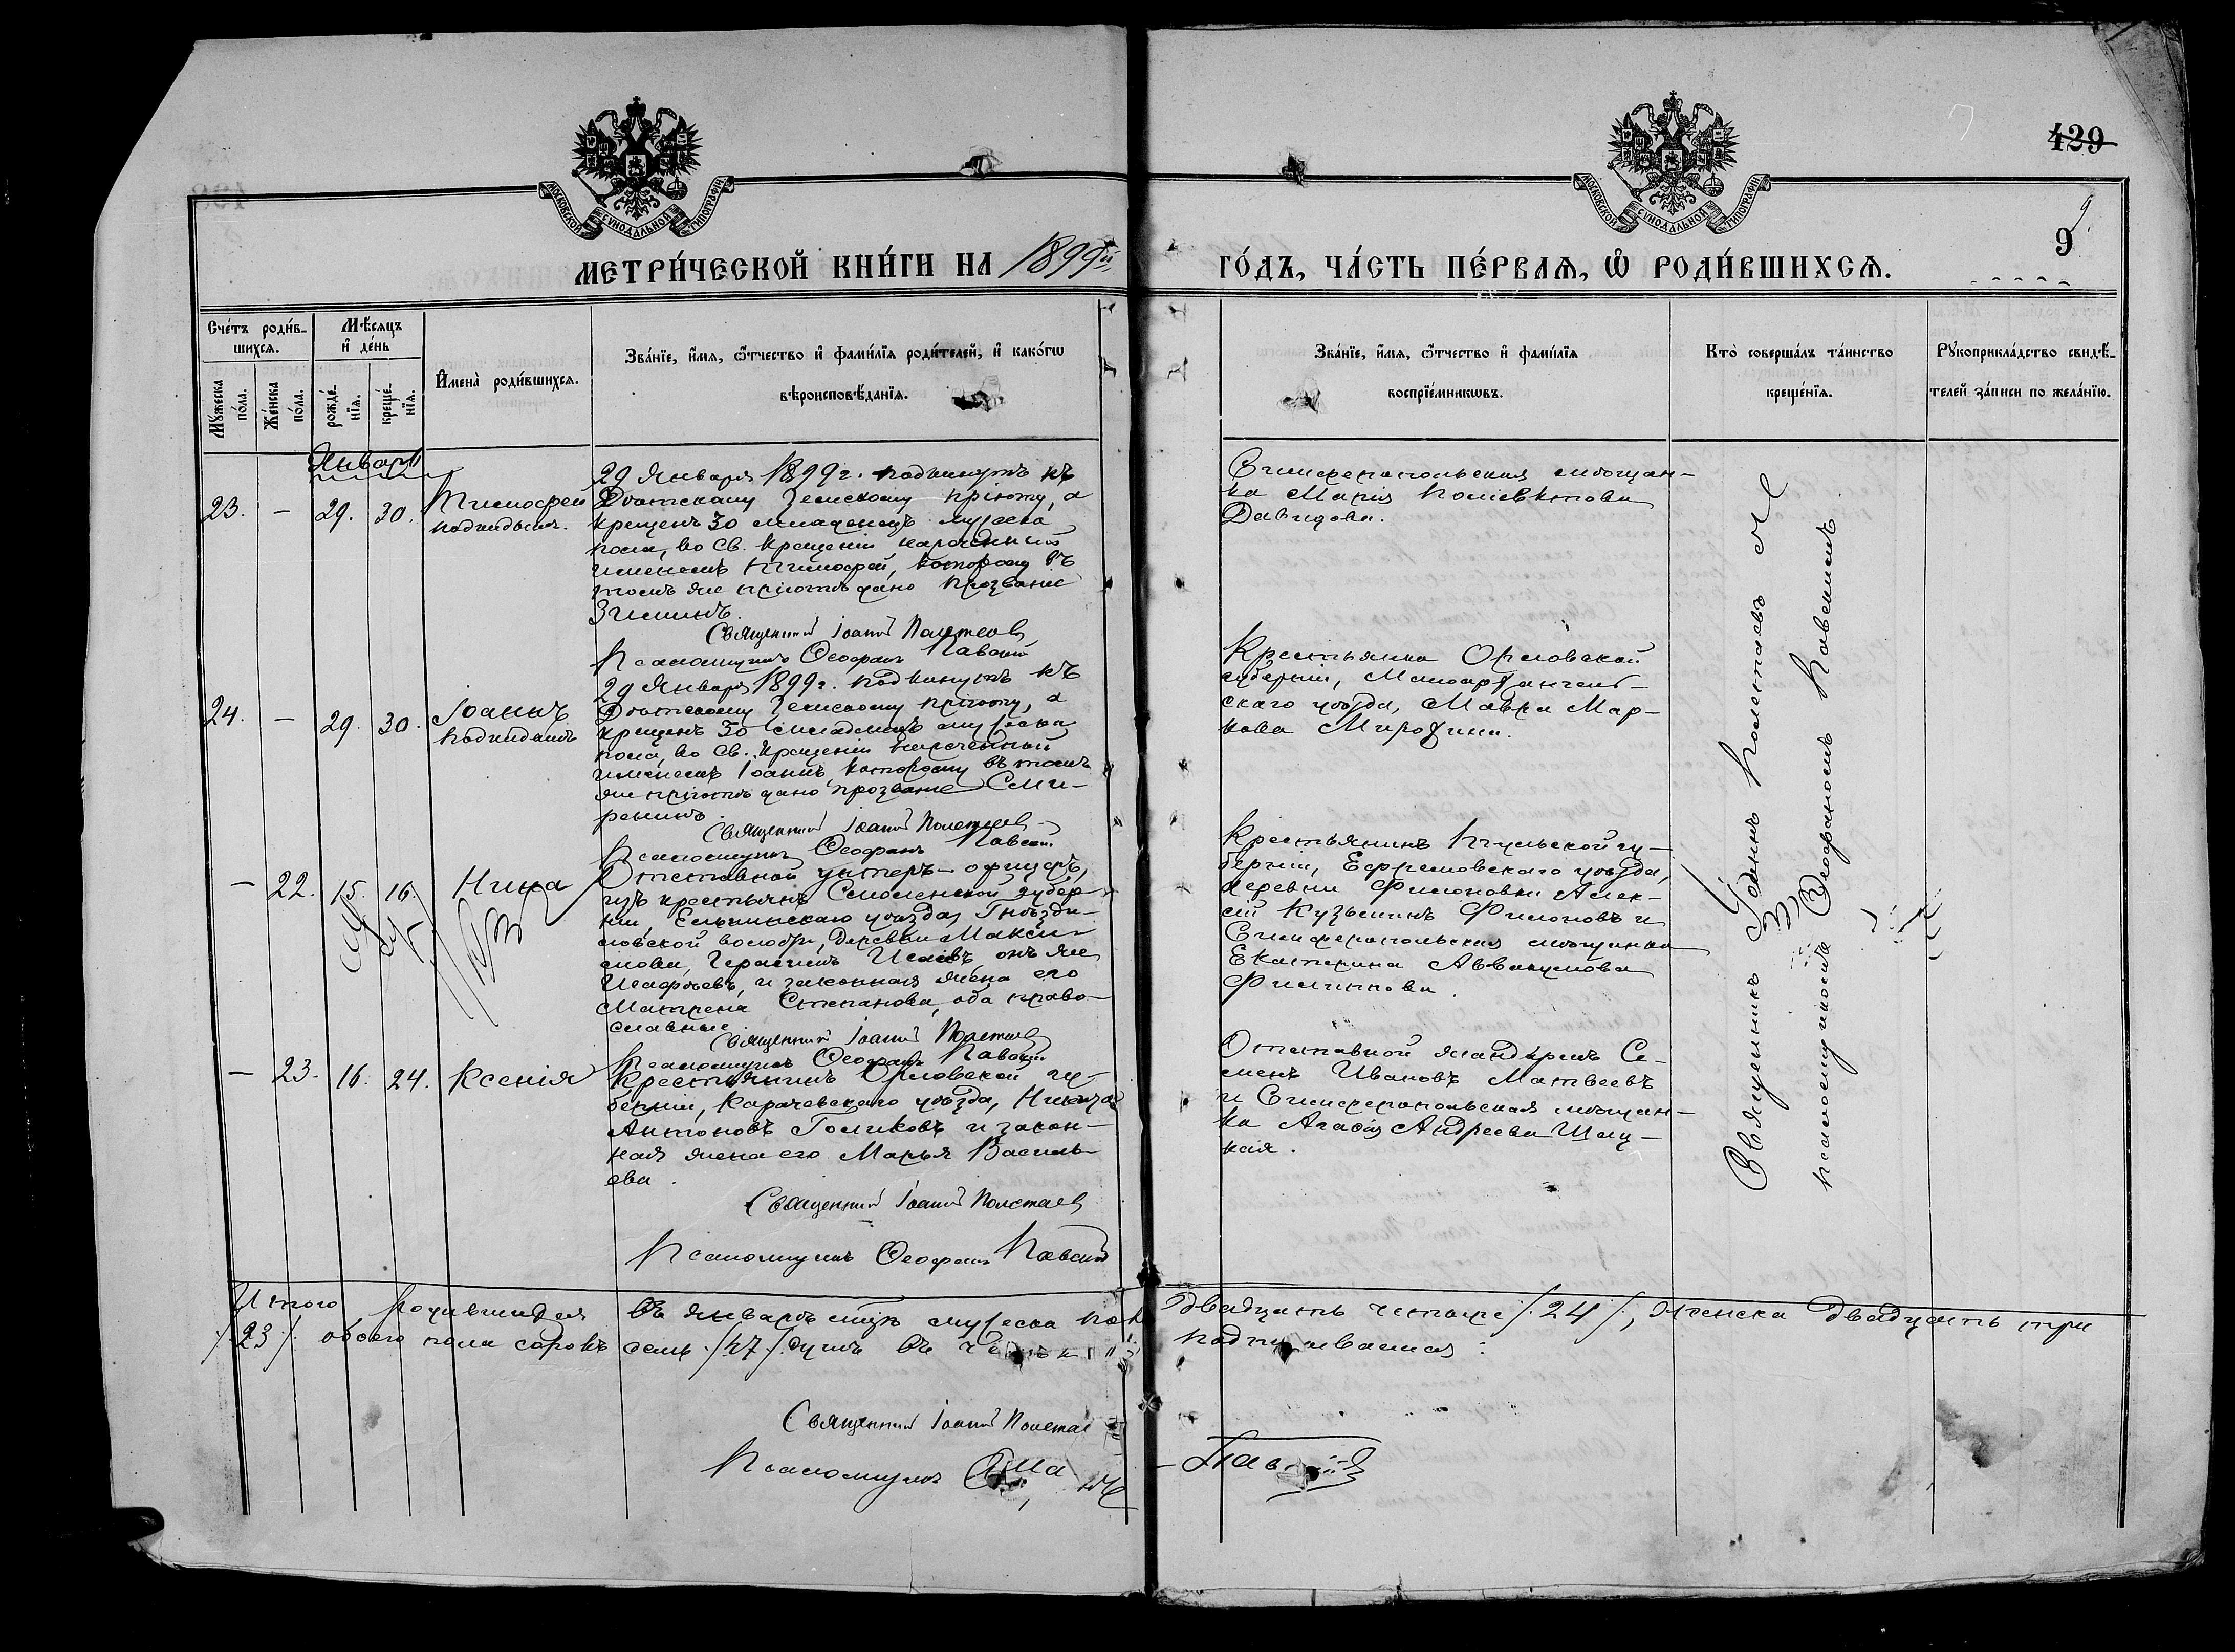 429
9
9
МОСКОВСКОЙ СѴНОДАЛЬНОЙ ТИПОГРАФІИ
МОСКОВСКОЙ СѴНОДАЛЬНОЙ ТИПОГРАФІИ
МЕТРИ́ЧЕСКОЙ КНИ́ГИ НА 1899й
ГО́ДЪ, ЧА́СТЬ ПЕ́РВАѦ, Ѡ҆ РОДИ́ВШИХСѦ.
Сче́тъ роди́в-
шихсѧ.
Мꙋ́жеска
по́ла.
Же́нска
по́ла.
Мѣ́сѧцъ
и҆ де́нь
рожде́-
нїѧ.
креще́-
нїѧ.
И҆мена̀ роди́вшихсѧ.
Зва́нїе, и҆́мѧ, ѻ҆́тчество и҆ фами́лїѧ роди́телей, и҆ како́гѡ
вѣроисповѣ́данїѧ.
Зва́нїе, и҆́мѧ, ѻ҆́тчество и҆ фами́лїѧ
воспрїе́мникѡвъ.
Кто̀ соверша́лъ та́инство
креще́нїѧ.
Рꙋкоприкла́дство свидѣ́-
телей за́писи по жела́нїю.
Январь
23.
-
29.
30.
Тимофей
подкидышъ.
29 Января 1899 г. подкинутъ къ
Дѣтскому Земскому пріюту, а
крещенъ 30 младенецъ мужеска
пола, во Св. Крещеніи нареченный
именемъ Тимофей, которому въ
томъ же пріютѣ дано прозваніе
Зиминъ.
Священникъ Іоаннъ Полетаевъ
Псаломщикъ Ѳеофанъ Павскій
Симферопольская мѣщан-
ка Марія Поліевктова
Давидова.
24.
-
29.
30.
Іоаннъ
подкидышъ
29 Января 1899 г. подкинутъ къ
Дѣтскому Земскому пріюту, а
крещенъ 30 младенецъ мужеска
пола, во Св. Крещеніи нареченный
именемъ Іоаннъ, которому въ томъ
же пріютѣ дано прозваніе Сми-
ренинъ.
Священникъ Іоаннъ Полетаевъ
Псаломщикъ Ѳеофанъ Павскій
Крестьянка Орловской
губерніи, Малоархангель-
скаго уѣзда, Мавра Мар-
кова Мирохина.
-
22.
15.
16.
Нина
Отставной унтеръ-офицеръ,
изъ крестьянъ Смоленской губер-
ніи, Ельнинскаго уѣзда, Гнѣзди-
ловской волости, деревни Макси-
мовки, Герасимъ Исаевъ, онъ же
и законная жена его
Матрена Степанова, оба право-
славные.
Священникъ Іоаннъ Полетаевъ
Псаломщикъ Ѳеофанъ Павскій
Крестьянинъ Тульской гу-
берніи, Ефремовскаго уѣзда,
деревни Филоновки Алек-
сѣй Кузьминъ Филоновъ и
Симферопольская мѣщанка
Екатерина Аввакумова
Филиппова.
-
23.
16.
24.
Ксенія
Крестьянинъ Орловской гу-
берніи, Карачевскаго уѣзда,
Антоновъ Голиковъ и закон-
ная жена его Марья Василь-
ева.
Священникъ Іоаннъ Полетаевъ
Псаломщикъ Ѳеофанъ Павскій
Отставной жандармъ Се-
менъ Ивановъ Матвеевъ
и Симферопольская мѣщан-
ка Агафія Андреева
Священникъ Іоаннъ Полетаевъ съ
псаломщикомъ Ѳеофаномъ Павскимъ.
Итого родившихся въ январѣ м-цѣ мужеска пола двадцать четыре /24/, женска двадцать три
/23/ обоего пола сорокъ семь /47/ душъ въ чемъ и подписываемся:
Священникъ Іоаннъ Полетаевъ
Псаломщикъ
Павскій